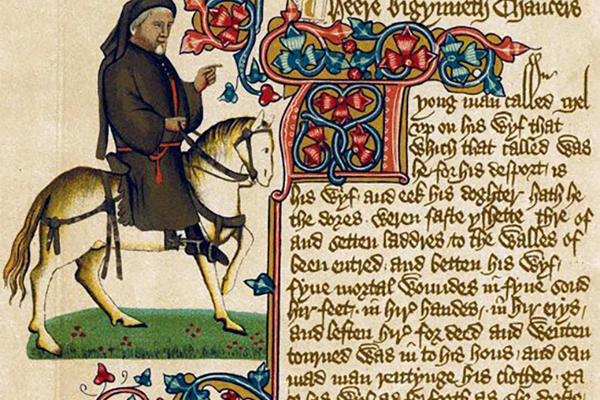 Heere bigynneth Chaucers
yong man called Mel
vp on his wyf that
Which that called was
for his desport is
his wyf and eek his doghter hath he
the dores weren faste yshette thre of
and setten laddres to the walles of
been entred and betten his wyf
fyue mortal woundes in fyue sond
hir feet in hir handes in hir erys
and leften hir for deed and wenten
tourned was in to his hous and sau
mad man rentynge his clothes ga
his wyf as ferforth as she